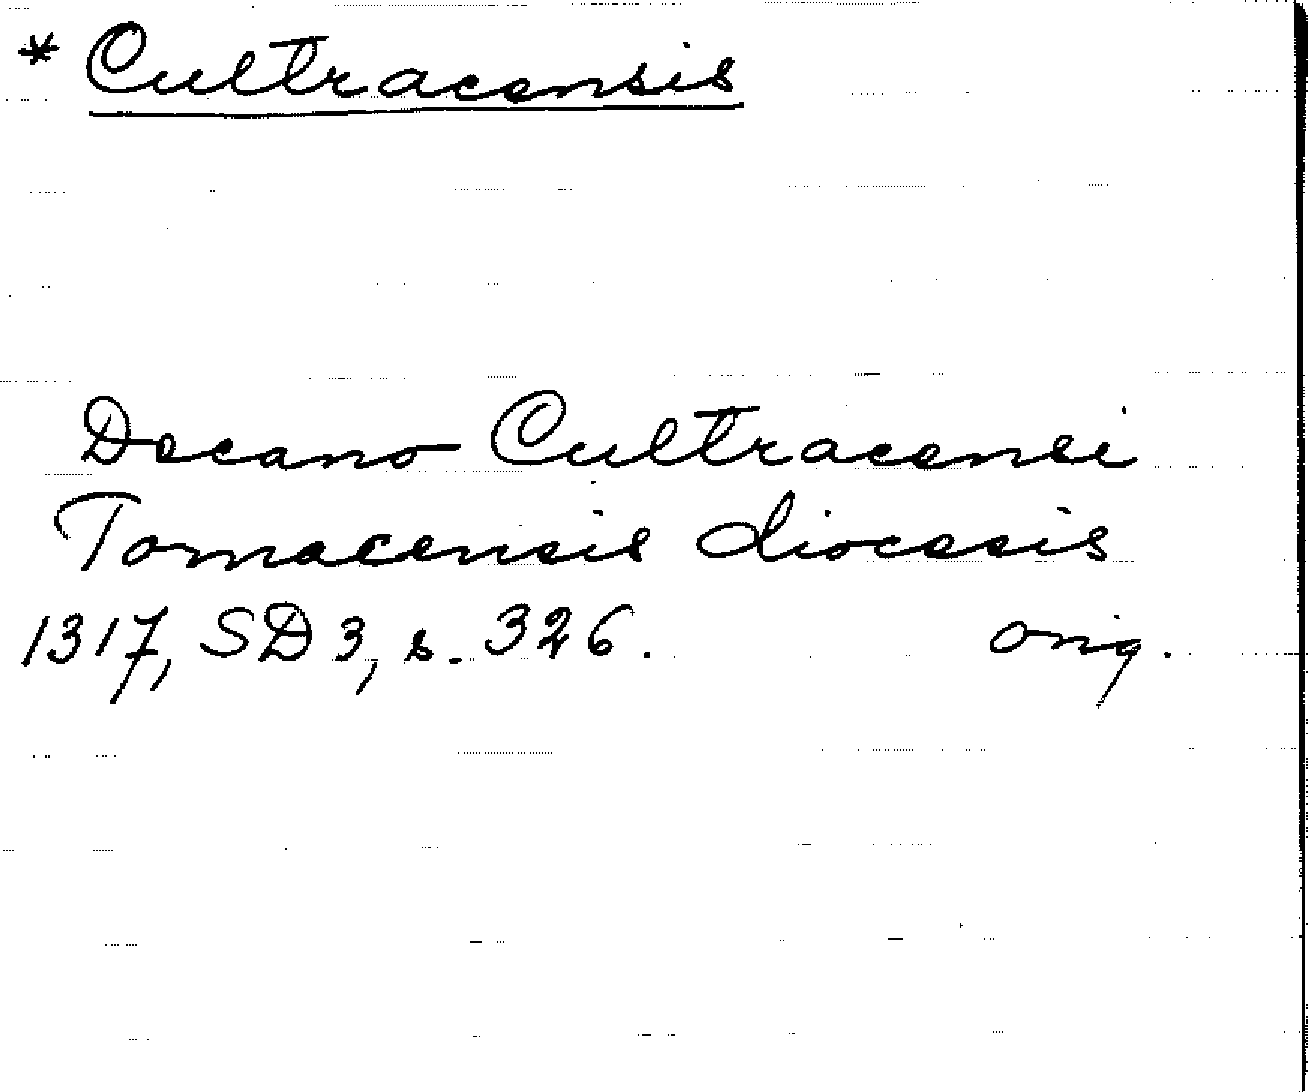 * Cultracensis
Decano Cultracensi
Tornacensis diocesis
1317, SD 3, s. 326. orig.